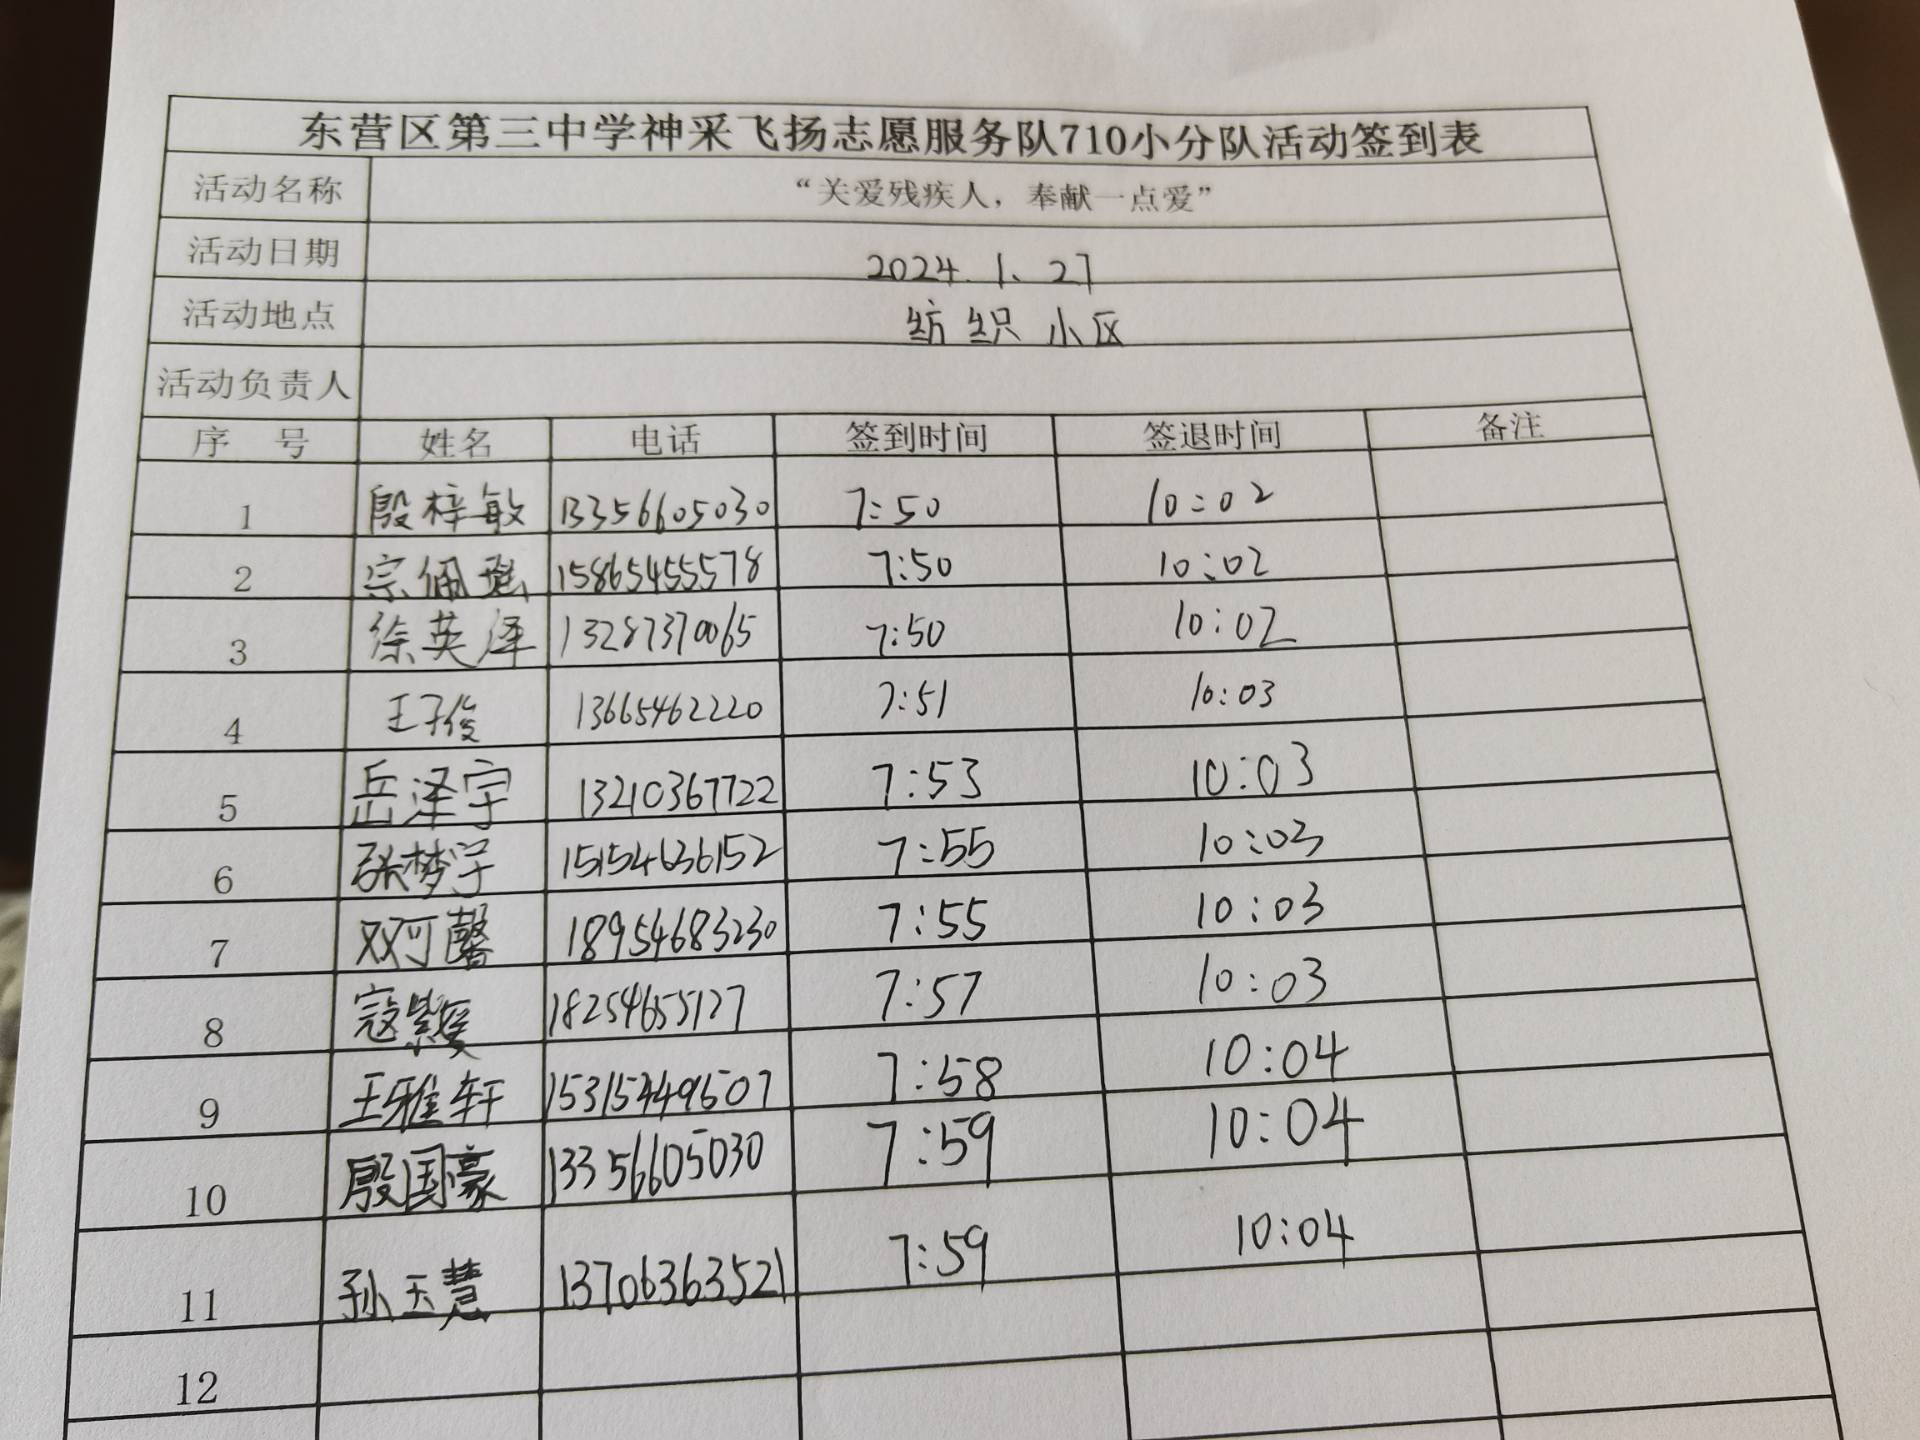 东营区第三中学神采飞扬志愿服务队710小分队活动签到表
活动名称 “关爱残疾人，奉献一点爱”
活动日期 2024.1.27
活动地点 纺织小区
活动负责人
序 号 姓名 电话 签到时间 签退时间 备注
1 殷梓敏 13356605030 7:50 10:02
2 宗佩瑶 15865455578 7:50 10:02
3 徐英泽 13287370065 7:50 10:02
4 王子俊 13665462220 7:51 10:03
5 岳泽宇 13210367722 7:53 10:03
6 张梦宇 15154636152 7:55 10:03
7 邓可馨 18954683230 7:55 10:03
8 寇紫媛 18254655127 7:57 10:03
9 王雅轩 15315449507 7:58 10:04
10 殷国豪 13356605030 7:59 10:04
11 孙玉慧 13706363521 7:59 10:04
12